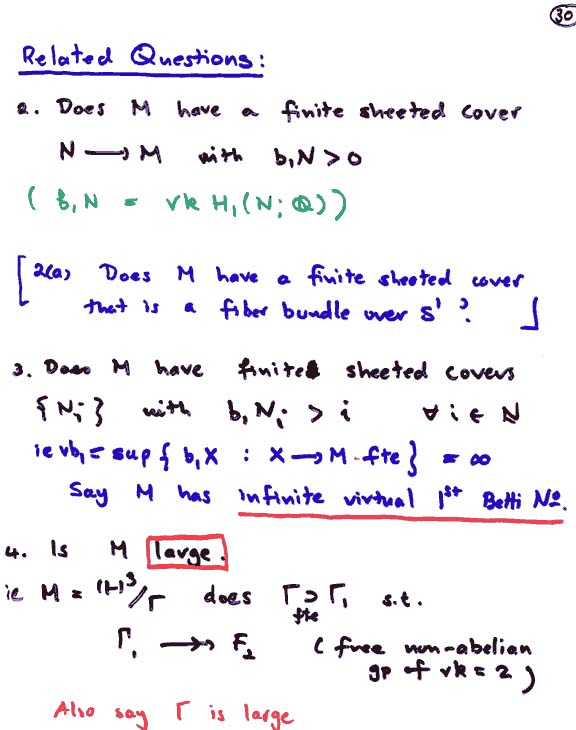 30
Related Questions:
2. Does M have a finite sheeted cover
N ⟶ M with b₁N > 0
( b₁N = rk H₁(N; ℚ))
[ 2(a) Does M have a finite sheeted cover
that is a fiber bundle over S¹ ? ]
3. Does M have finite sheeted covers
{Nᵢ} with b₁Nᵢ > i ∀ i ∈ ℕ
ie vb₁ = sup{ b₁X : X ⟶ M fte } = ∞
Say M has infinite virtual 1st Betti No.
4. Is M large.
ie M = ℍ³/Γ does Γ ⊃ Γ₁ s.t.
fte
Γ₁ ↠ F₂ ( free non-abelian
gp of rk = 2 )
Also say Γ is large